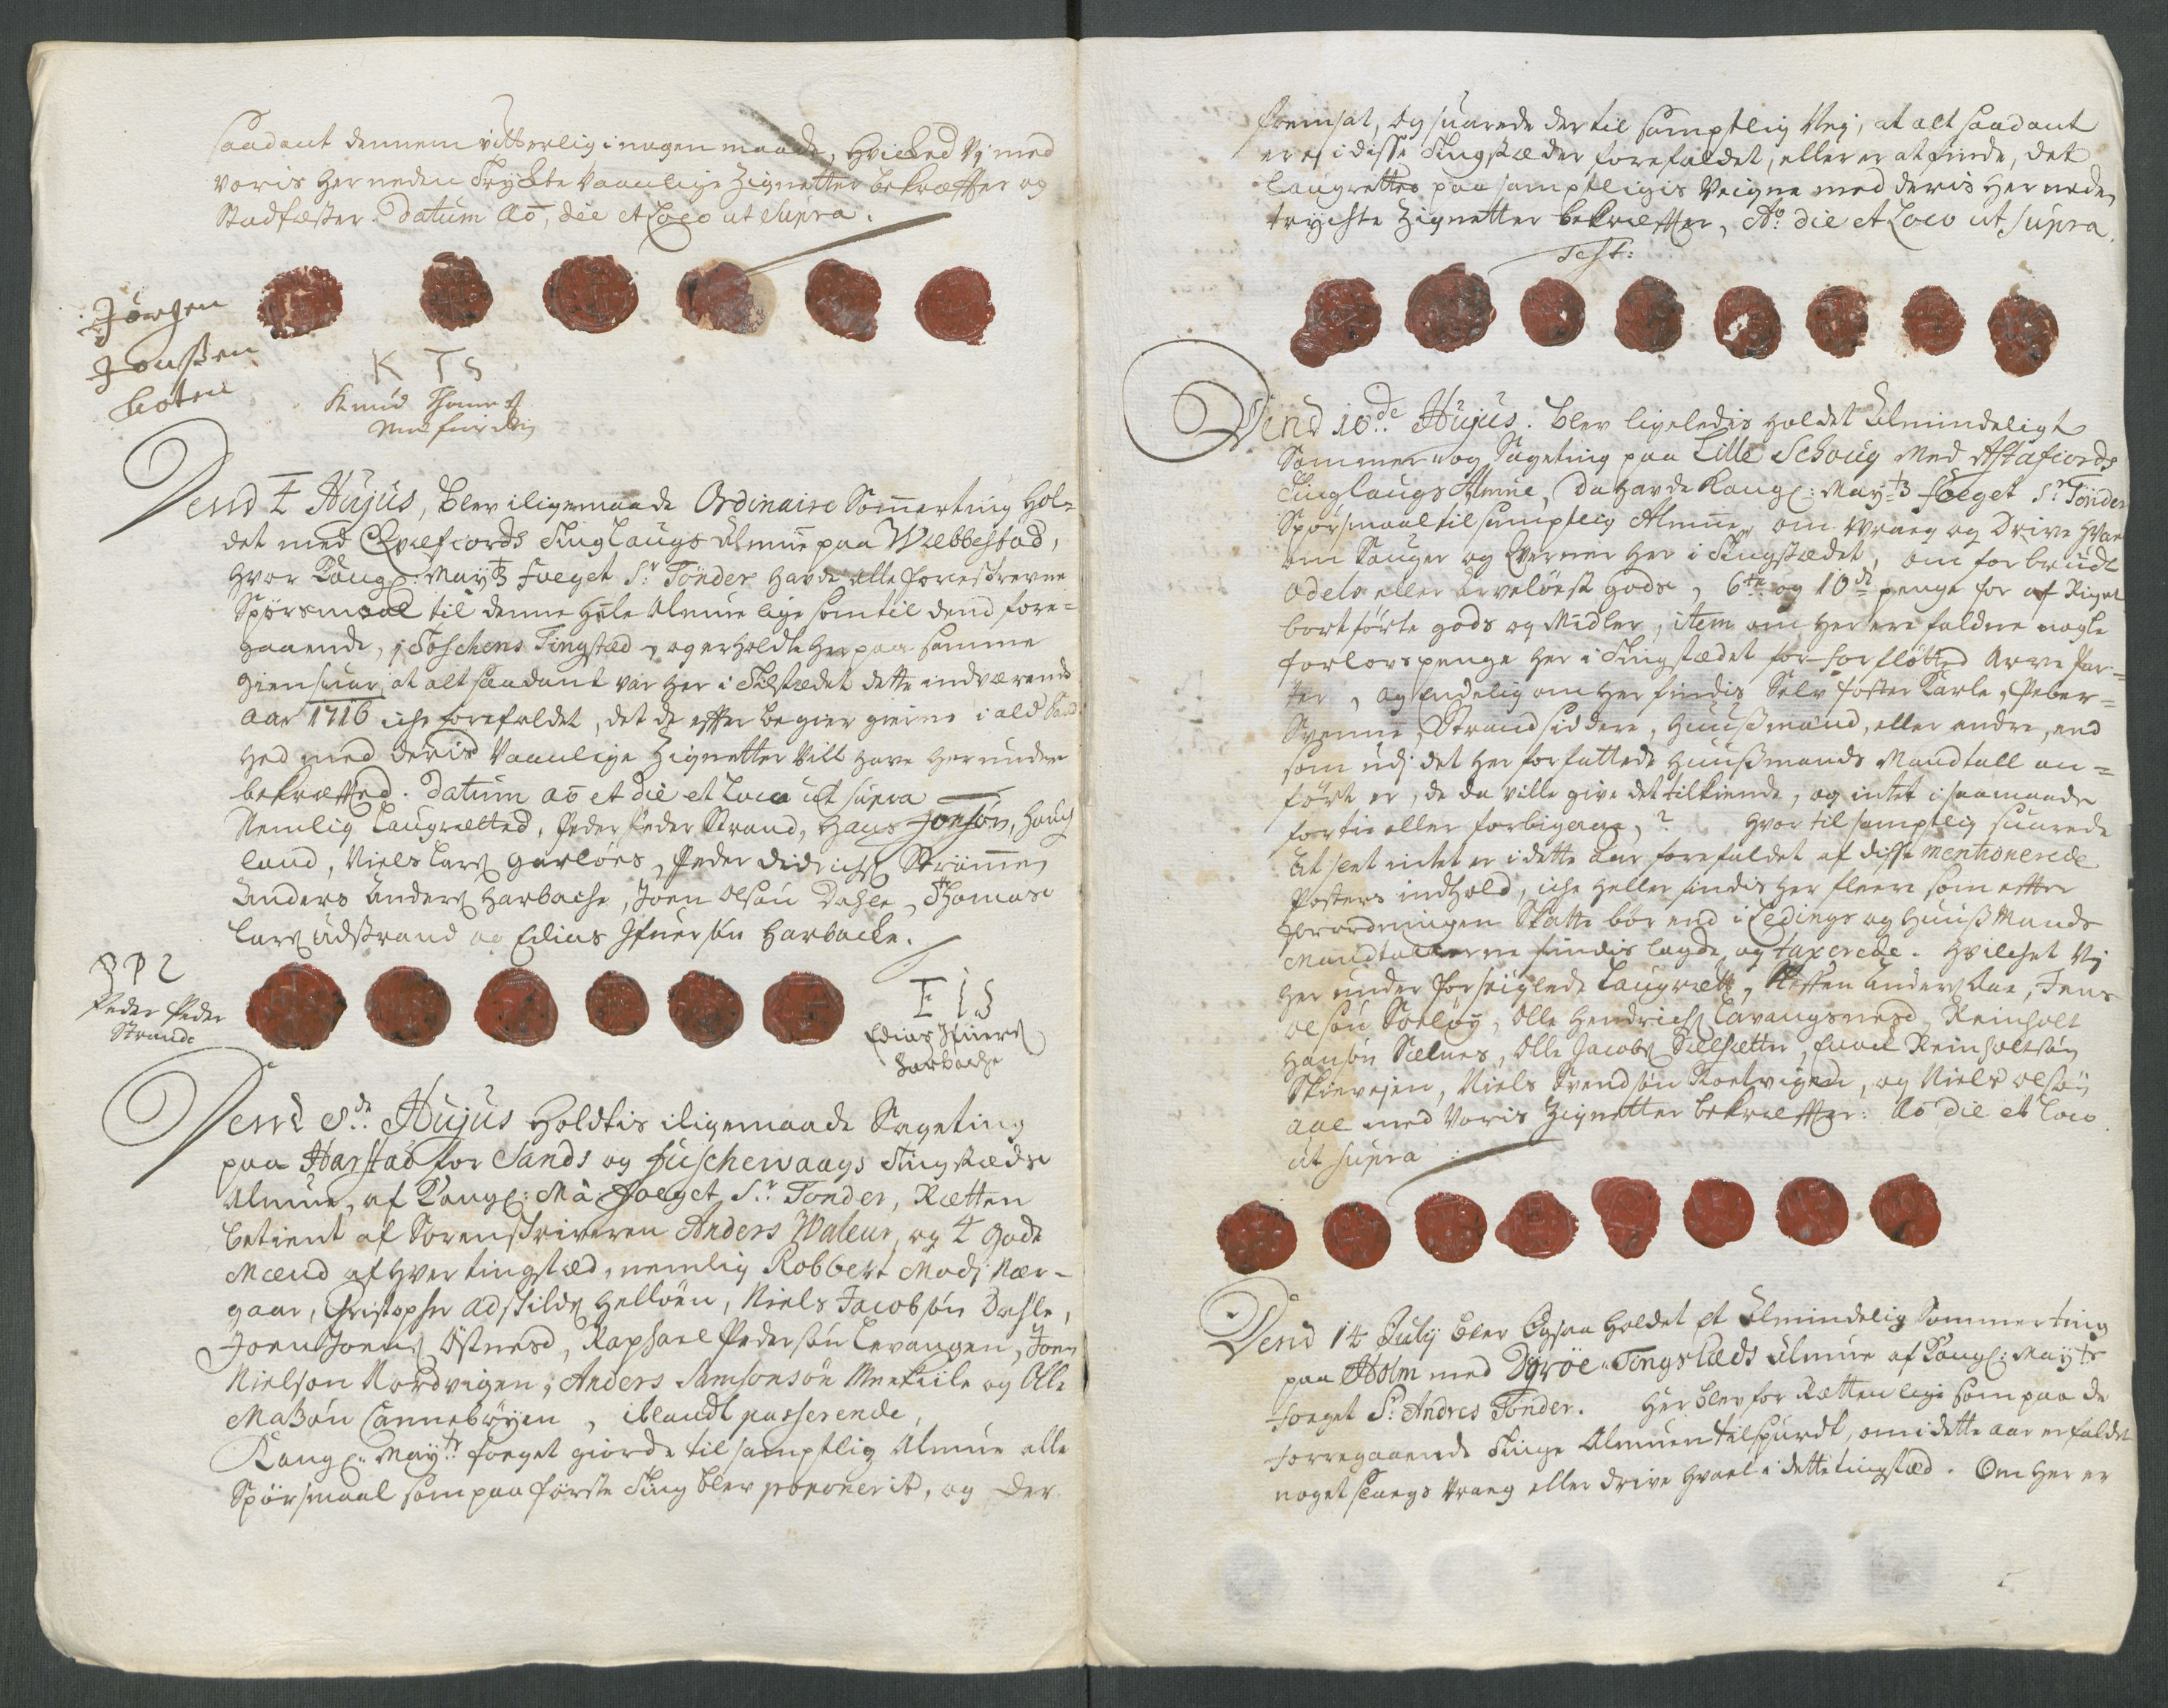 saadant dennem vitterlig i nogen maade, Hvicked Vj med
voris her neden Trychte Vaanlige Zignetter bekræffter og
Stadfæster. Datum Ao, die et Loco ut Supra.
Jørgen
Jonssen
K T S
Knud Thomes
Dend 4 Hujus, blev iligemaade Ordinaire Somerting hol-
det med Qvæfiords Tinglaugs Almue paa Wæbbestad,
hvor Kongl: Mayts foeget Sr. Tönder havde alle foreskrevne
Spörsmaal til denne hele Almue lige som til dend fore-
gaaende, i Toschens Tingstæd, og erholdte her paa samme
giensvar, at alt saadant var her i Tingstædet dette indværende
aar 1716 iche forefaldet, det de effter begier gierne i ald Sand
hed med deris Vaanlige Zignetter vill have herunder
bekræftted. Datum ao et die et Loco ut supra
Nemlig Laugretted, Peder Peders Strand, Hans Jonsön, Haug
land, Niels Lars Garlöes, Peder Didrichs Strömmen
Anders Anders Harbache, Joen Olsön Dahle, Thomas
Lars Udstrand og Elias Harbache.
P P S
Peder Peder
Strand
E I S
Elias
Harbache
Dend 8de Hujus Holdtis iligemaade Sageting
paa Harstad for Sands og Fuschevaags Tingstæds
Almue, af Kongl: Ma: foeget Sr. Tonder, Rætten
betient af Sorenskriveren Anders Waleur, og 4 gode
Mænd af hver tingstæd, nemlig Robbert Mads Nær-
gaar, Christopher Adskilds Hellöen, Niels Jacobsön Dahle,
Joen Joens Östnesd, Raphael Pedersön Levangen, Joen
Nielsøn Nordvigen, Anders Samsonsön Meekiile og Olle
Maßön Cannebøyen, iblandt passerende,
Kongl: Mayts foeget giorde til samptlig Almue alle
Spörsmaal som paa förste Ting blev proponerit, og der
fremsat, og svarede der til samptlig Nej, at alt saadant
er ej i disse Tingstæder forefaldet, eller er at finde, det
Laugrettes paa samptligis Veigne med deris her neden
trychte Zignetter bekræffter, Ao. die et Loco ut supra.
Test:
Dend 10de Hujus. blev ligeledis holdet Almindeligt
Sommer og Sageting paa Lille Schoug med Astafiords
Tinglaugs Almue, da havde Kongl: Mayts foeget Sr Tönder
Spörsmaal til samptlig Almue, om Wraeg og Drive Hval
om Sauger og Qværner her i Tingstædet, om forbrudt
odels eller Arvelöest gods, 6te og 10de penge for af Riget
bortförte gods og Midler, item om her ere faldne nogle
forlovspenge her i Tingstædet for forfløtted Arve par-
ter, og endelig om her findis Selv foster Karle, Peber-
Svenne, Strandsiddere, Huusmænd, eller andre, end
som udj det her forfattede Huusmands Mandtall an-
fört er, de da ville give det tilkiende, og intet i saamaade
fortie eller forbigaae,? hvor til samptlig svarede
At slet intet er i dette Aar forefaldet af disse mentionerede
Posters indhold, iche heller findis her fleere som effter
forordningen Skatte bör end i Ledings og Huuß Mands
Mandtallerne findis lagde og taxerede. Hvilchet Vj
her under forseiglede Laugrett, Steffen Anders Aae, Jens
Olsön Soelöy, Olle Hendrichs Lavangsnesd, Reinholt
Hansön Sælnes, Olle Jacobs Selsætter, Reinholtsön
Skievejen, Niels Svendsön Roelvigen, og Niels Olsön
Aae med Voris Zignetter bekræffter: Ao die et Loco
ut supra.
Dend 14 July blev Ogsaa holdet et Almindelig Sommerting
paa Holm med Dÿröe Tingstæds Almue af Kongl: Mayts
foeget Sr. Andres Tönder. Her blev for Rætten lige som paa de
forregaaende Tinge Almuen tilspurdt, om i dette aar er faldet
noget slaugs Vraeg eller drive hvael i dette tingstæd. Om her er